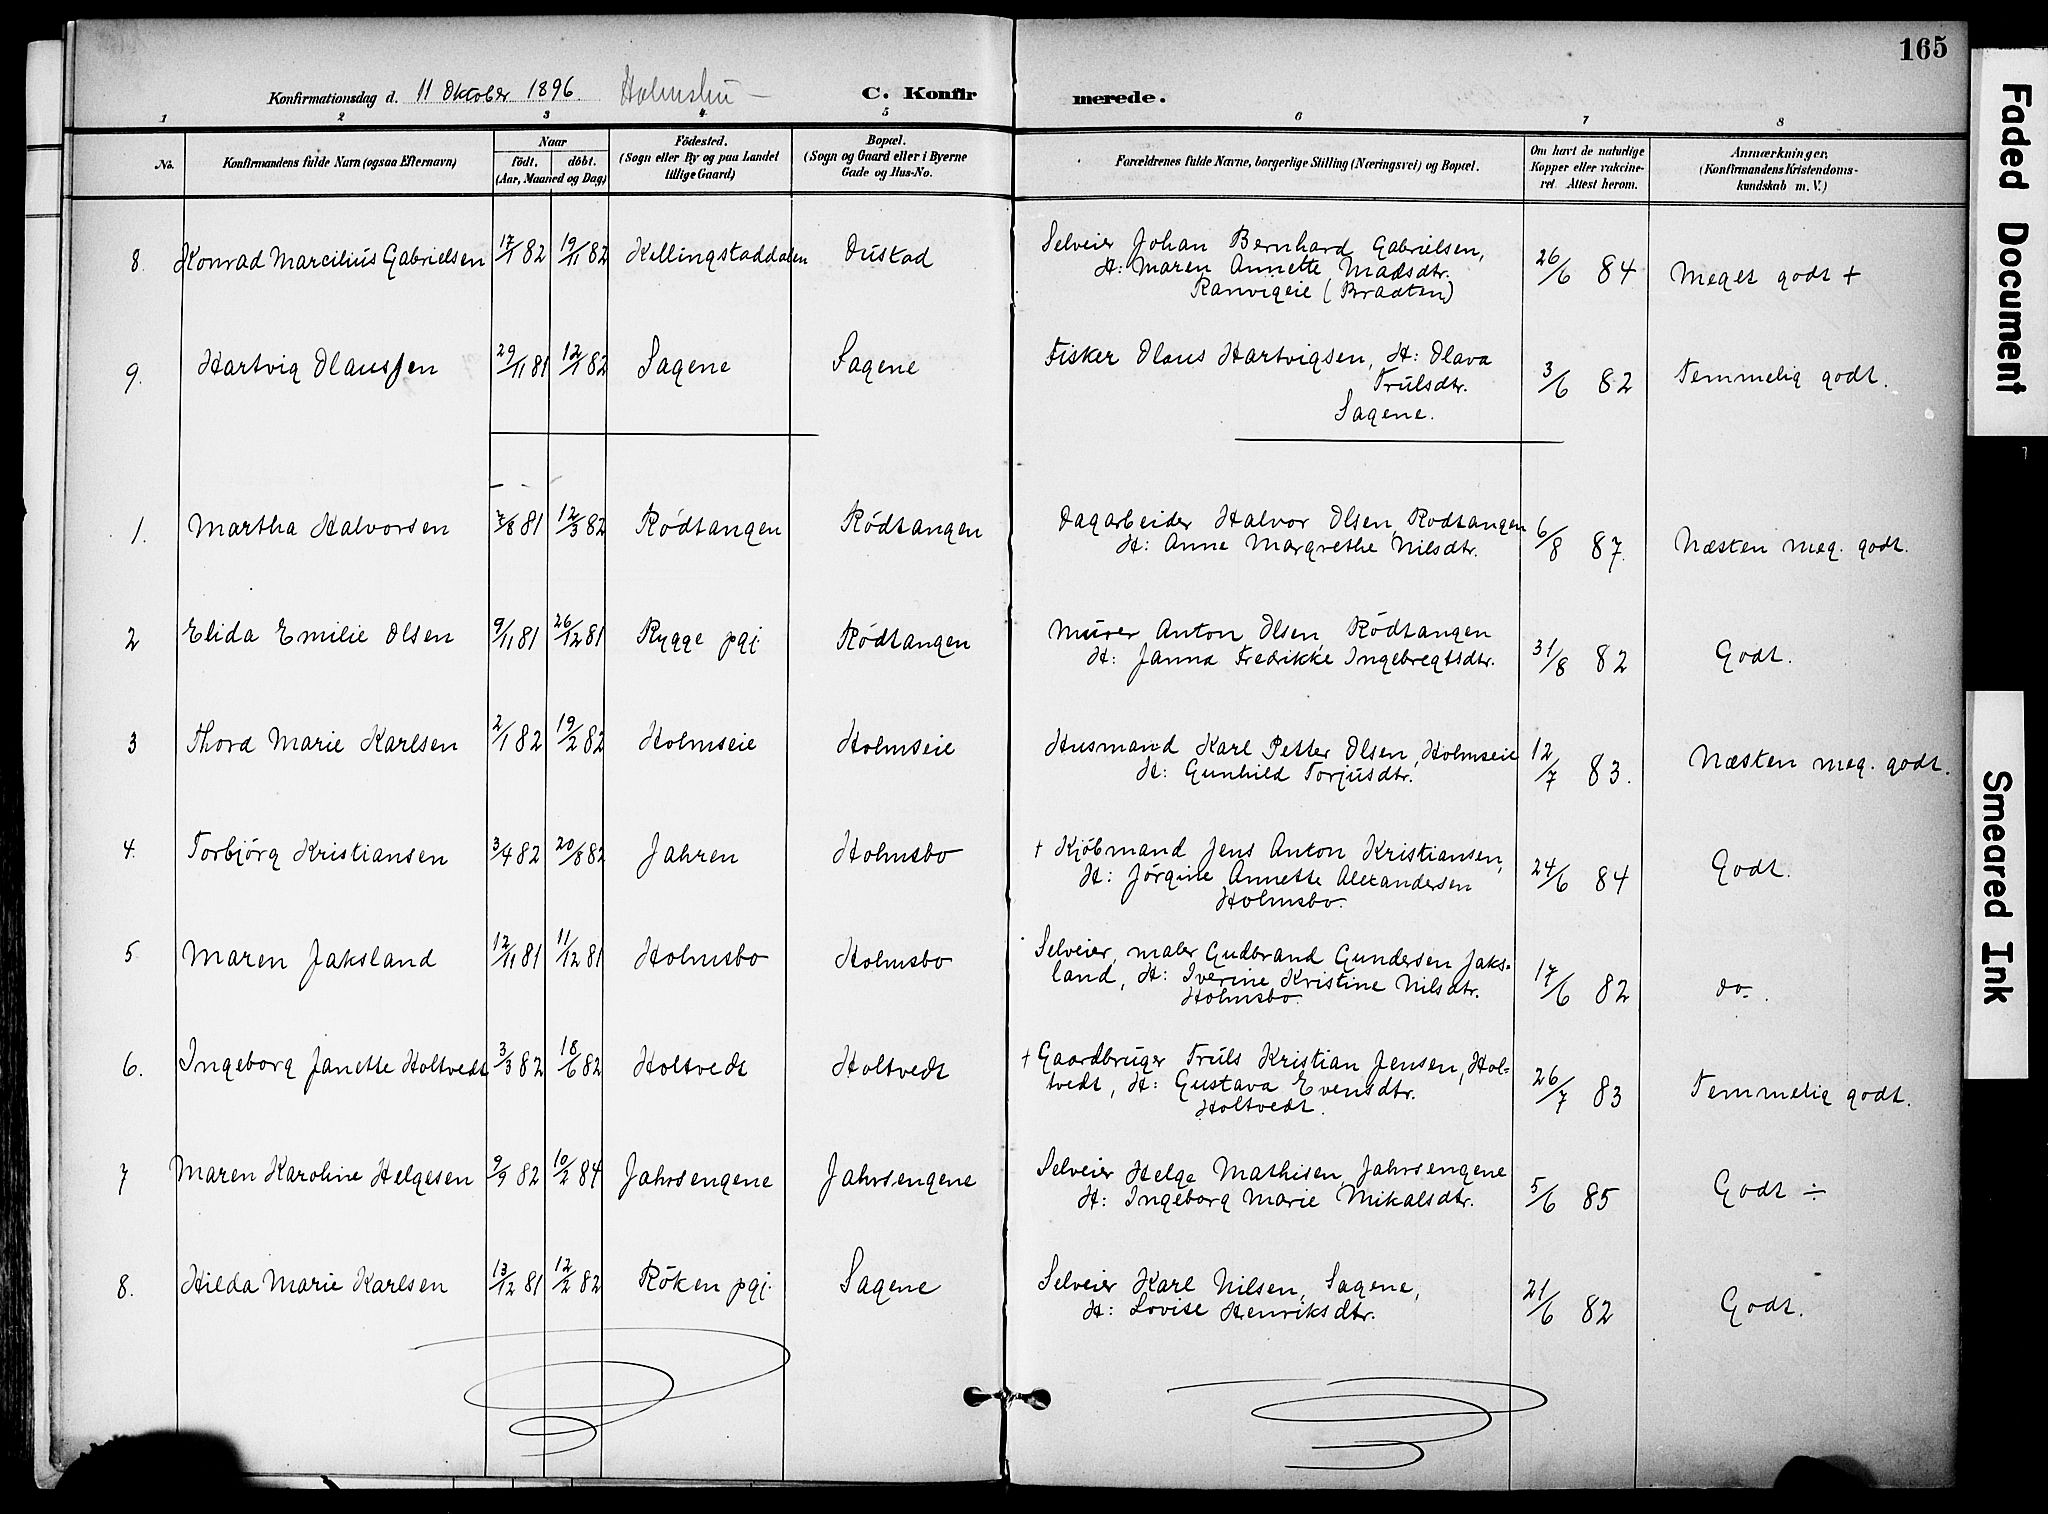 165
Konfirmationsdag d. 11 Oktober 1896. C. Konfirmerede.
1 2 3 4 5 6 7 8
No. Konfirmandens fulde Navn (ogsaa Efternavn) Naar födt, döbt. (Aar, Maaned og Dag) Födested. (Sogn eller By og paa Landet tillige Gaard) Bopæl. (Sogn og Gaard eller i Byerne Gade og Hus-No. Forældrenes fulde Navne, borgerlige Stilling (Næringsvei) og Bopæl. Om havt de naturlige Kopper eller vakcineret. Attest herom. Anmærkninger. (Konfirmandens Kristendomskundskab m. V.)
8. Konrad Marcilius Gabrielsen 17/1 82 19/11 82 Killingstaddalen Dustad Selveier Johan Bernhard Gabrielsen, 26/6 84 Meget godt +
H: Maren Annette Madsdtr.
Ranvigeie (Bradten)
9. Hartvig Olaussen 29/11 81 12/1 82 Sagene Sagene Fisker Olaus Hartvigsen, H: Olava 3/6 82 Temmelig godt.
Trulsdtr.
Sagene.
1. Martha Halvorsen 81 12/3 82 Rödtangen Rödtangen Dagarbeider Halvor Olsen, Rodtangen 6/8 87. Næsten meg. godt.
H: Anne Margrethe Nilsdtr.
2 Elida Emilie Olsen 9/11 81 26/12 81 Rygge pgj. Rödtangen Murer Anton Olsen, Rödtangen 31/8 82 Godt.
H: Janna Fredrikke Ingebregtsdtr.
3 Thora Marie Karlsen 2/1 82 19/2 82 Holmseie Holmseie Husmand Karl Petter Olsen, Holmseie 12/7 83. Næsten meg. godt.
H: Gunhild Torjusdtr.
4. Torbjörg Kristiansen 3/4 82 20/8 82 Jahren Holmsbo † Kjöbmand Jens Anton Kristiansen, 24/6 84 Godt.
H: Jörgine Annette Alexandersen
Holmsbo.
5. Maren Jaksland 12/11 81 11/12 81 Holmsbo Holmsbo Selveier, maler Gudbrand Gundersen Jaks- 17/6 82 do.
land, H: Iverine Kristine Nilsdtr.
Holmsbo.
6. Ingeborg Janette Holtvedt 3/3 82 18/6 82 Holtvedt Holtvedt † Gaardbruger Truls Kristian Jensen, Hol- 26/7 83 Temmelig godt.
tvedt, H: Gustava Evensdtr.
Holtvedt.
7 Maren Karoline Helgesen 9/9 82 10/2 84 Jahrsengene Jahrsengene Selveier Helge Mathisen, Jahrsengene 5/6 85 Godt ÷
H: Ingeborg Marie Mikalsdtr.
8. Hilda Marie Karlsen 13/12 81 12/2 82 Röken pgj. Sagene Selveier Karl Nilsen, Sagene, 21/6 82 Godt.
H: Lovise Henriksdtr.
Faded Document
Smeared Ink